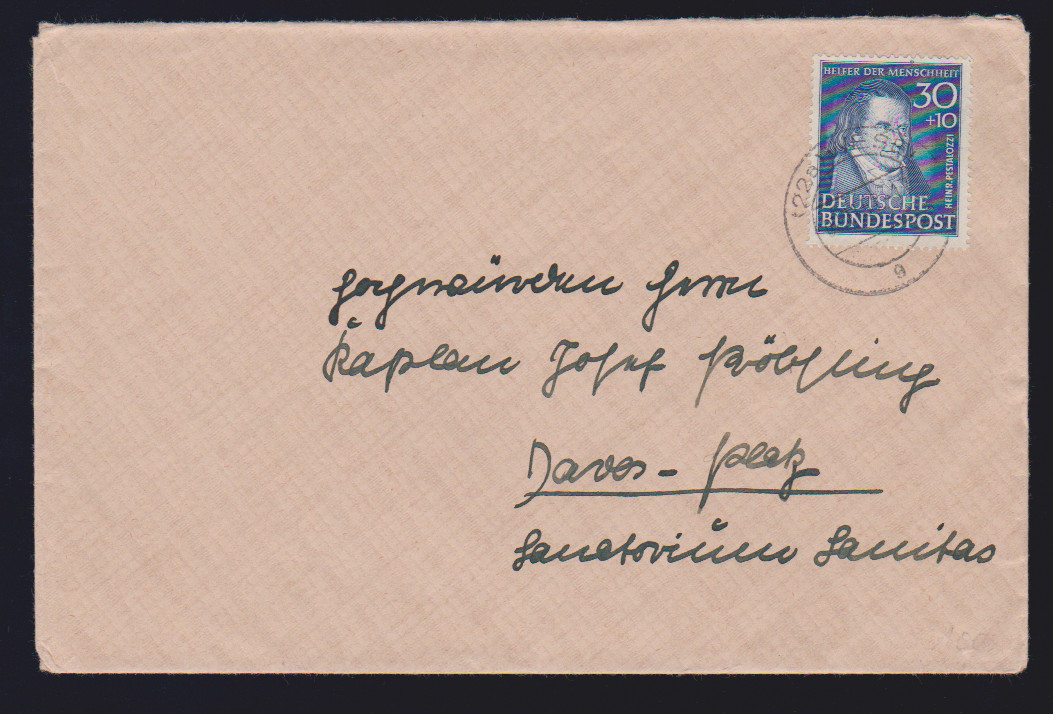 HELFER DER MENSCHHEIT
30
+10
HEINR. PESTALOZZI
DEUTSCHE
BUNDESPOST
(22a)
g
Hochwürden Herrn
Kaplan Josef
Davos - Platz
Sanatorium Sanitas